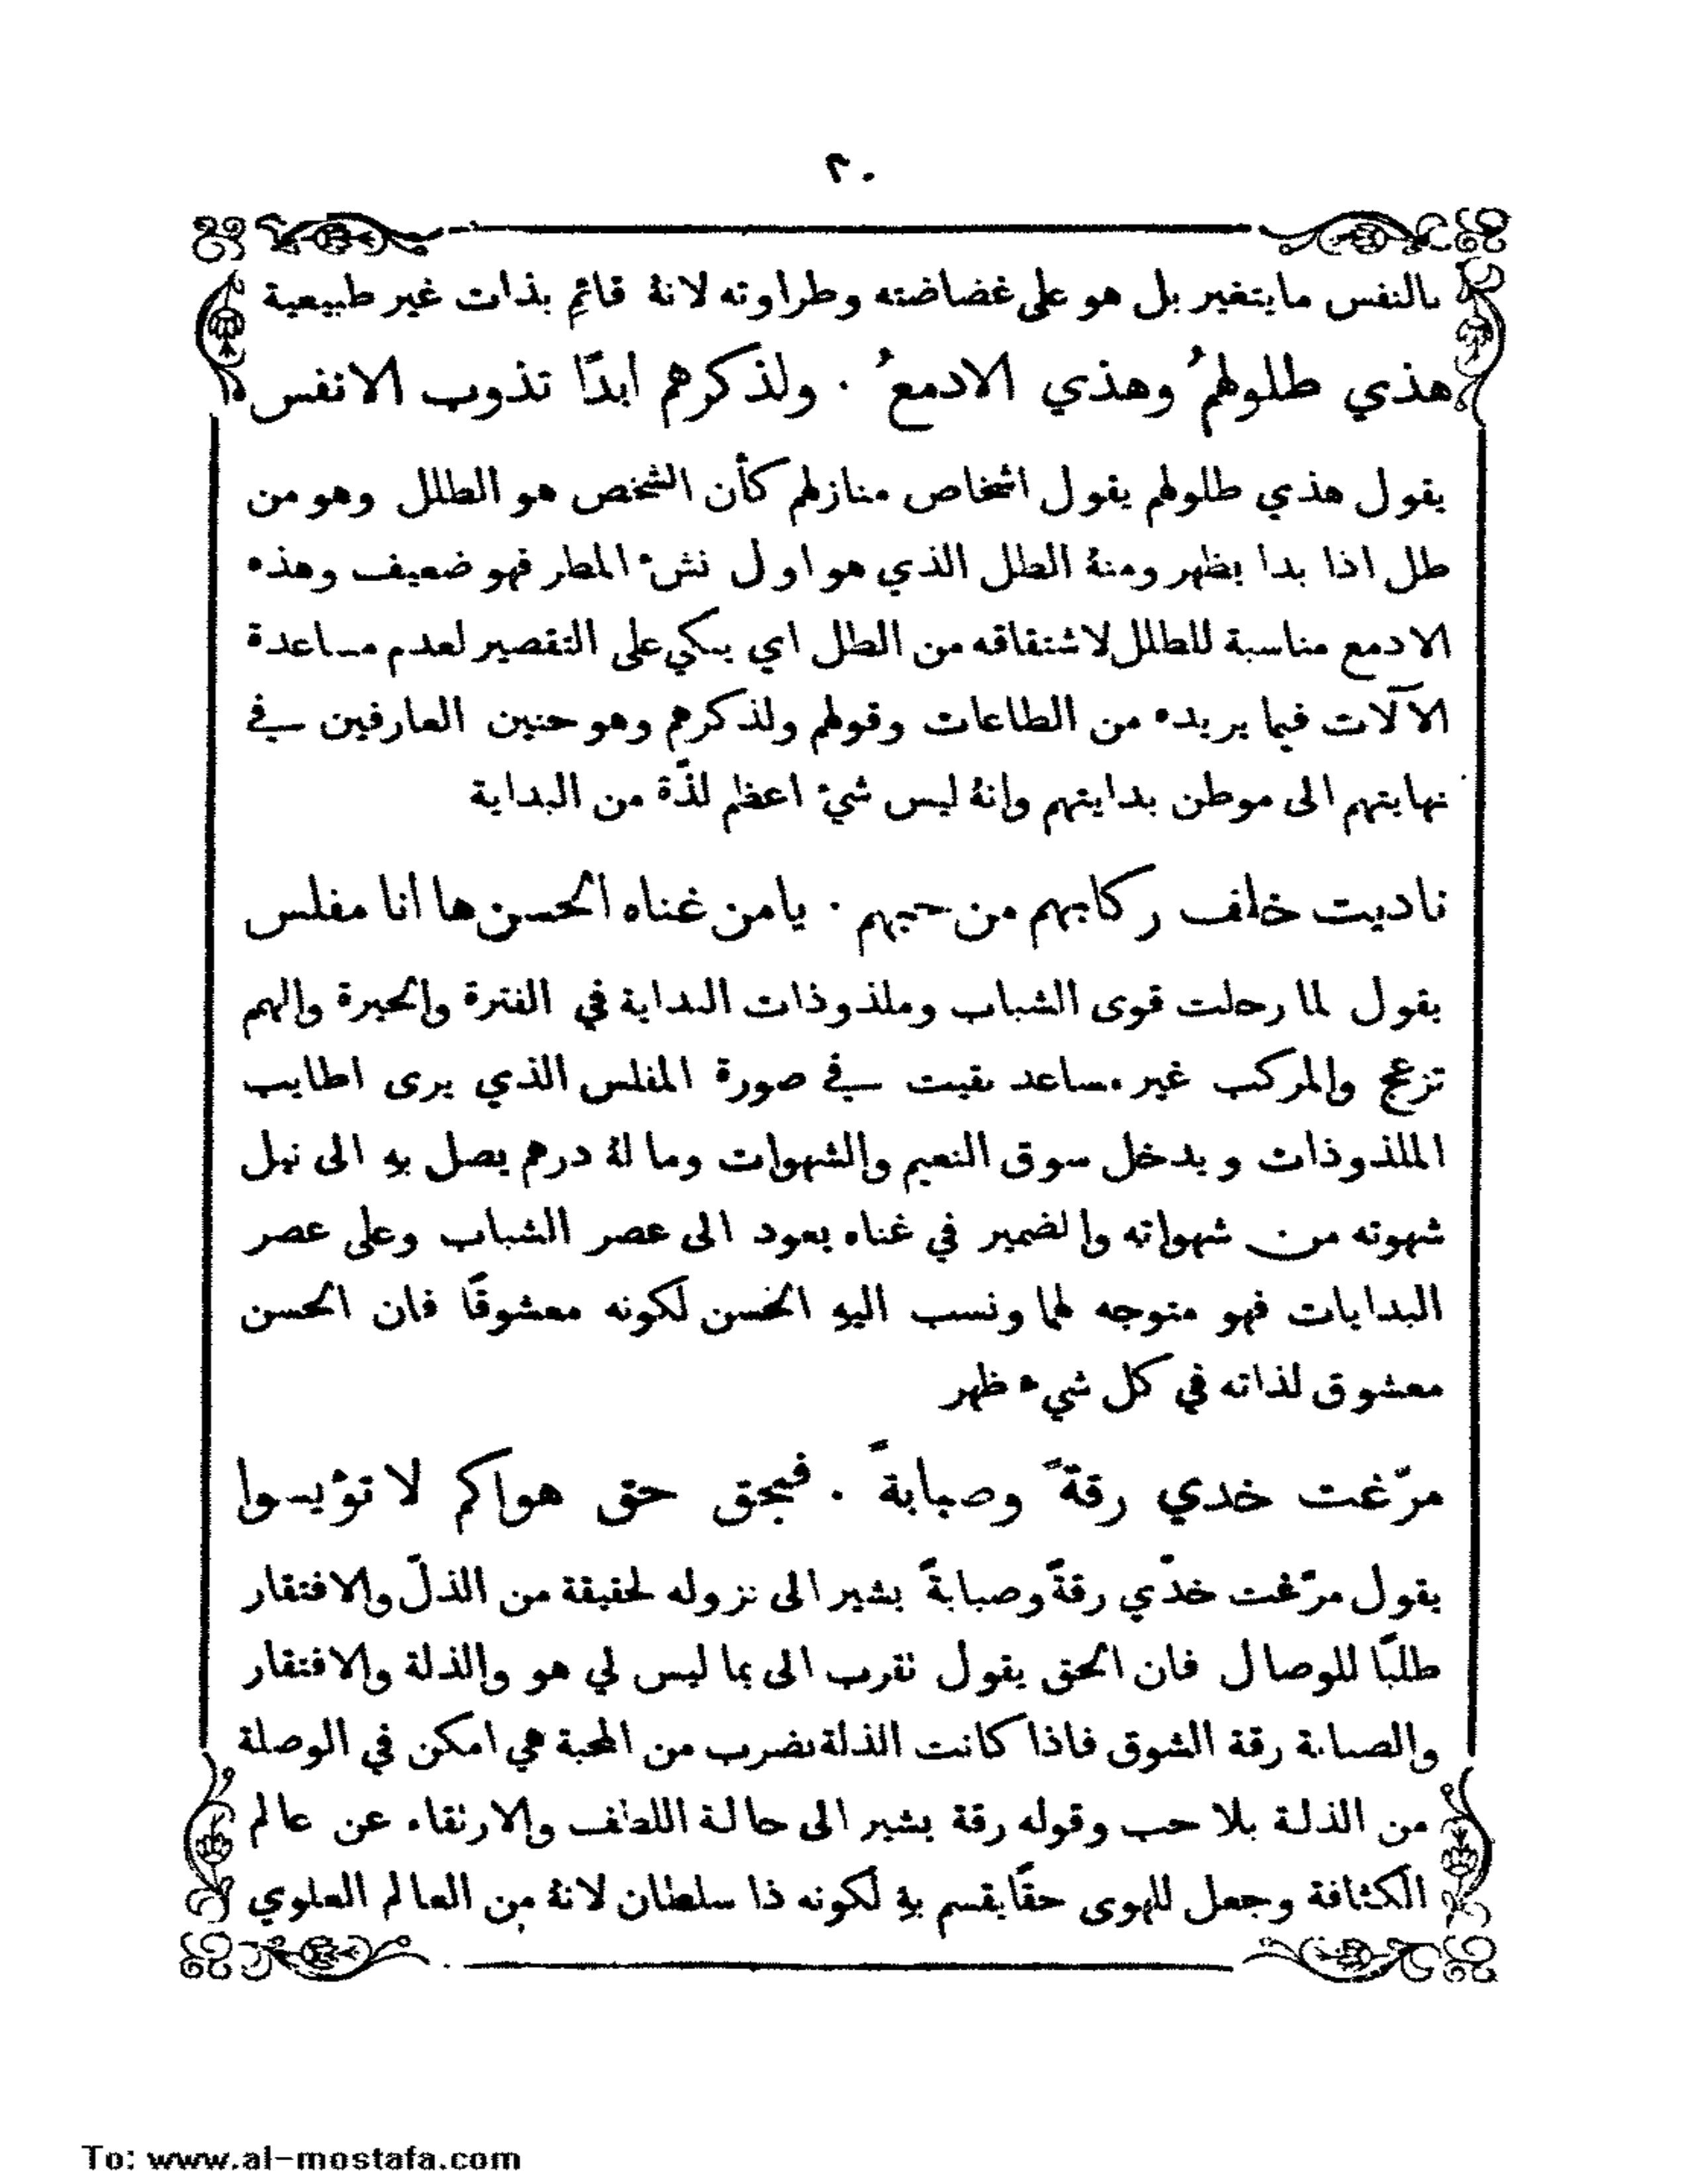 ٢٠
بالنفس ما يتغير بل هو على غضاضته وطراوته لانهُ قائم بذات غير طبيعية
هذي طلولهمُ وهذي الادمعُ . ولذكرهم ابدًا تذوب الانفس
يقول هذي طلولهم يقول اشخاص منازلهم كأن الشخص هو الطلل وهو من
طل اذا بدا يظهر ومنهُ الطل الذي هو اول نشء المطر فهو ضعيف وهذه
الادمع مناسبة للطلل لاشتقاقه من الطل اي يبكي على التقصير لعدم مساعدة
الآلات فيما يريده من الطاعات وقولهم ولذكرهم وهو حنين العارفين في
نهايتهم الى موطن بدايتهم وانهُ ليس شيء اعظم لذّة من البداية
ناديت خلف ركابهم من حبهم . يا من غناه الحسن ها أنا مفلس
يقول لما رحلت قوى الشباب وملذوذات البداية في الفترة والحيرة والهمم
تزعج والمركب غير مساعد بقيت في صورة المفلس الذي يرى اطايب
الملذوذات ويدخل سوق النعيم والشهوات وما لهُ درهم يصل بهِ الى نيل
شهوته من شهواته والضمير في غناه يعود الى عصر الشباب وعلى عصر
البدايات فهو متوجه لهما ونسب اليهِ الحسن لكونه معشوقًا فان الحسن
معشوق لذاته في كل شيء ظهر
مرّغت خدي رقةً وصبابةً . فبحق حق هواكم لا تؤيسوا
يقول مرّغت خدّي رقةً وصبابةً يشير الى نزوله لحقيقة من الذلّ والافتقار
طلبًا للوصال فان الحق يقول تقرب الى بما ليس لي هو والذلة والافتقار
والصبابة رقة الشوق فاذا كانت الذلة بضرب من المحبة هي امكن في الوصلة
من الذلة بلا حب وقوله رقة يشير الى حالة اللطف والارتقاء عن عالم
الكثافة وجعل للهوى حقًا يقسم بهِ لكونه ذا سلطان لانهُ من العالم العلوي
To: www.al-mostafa.com